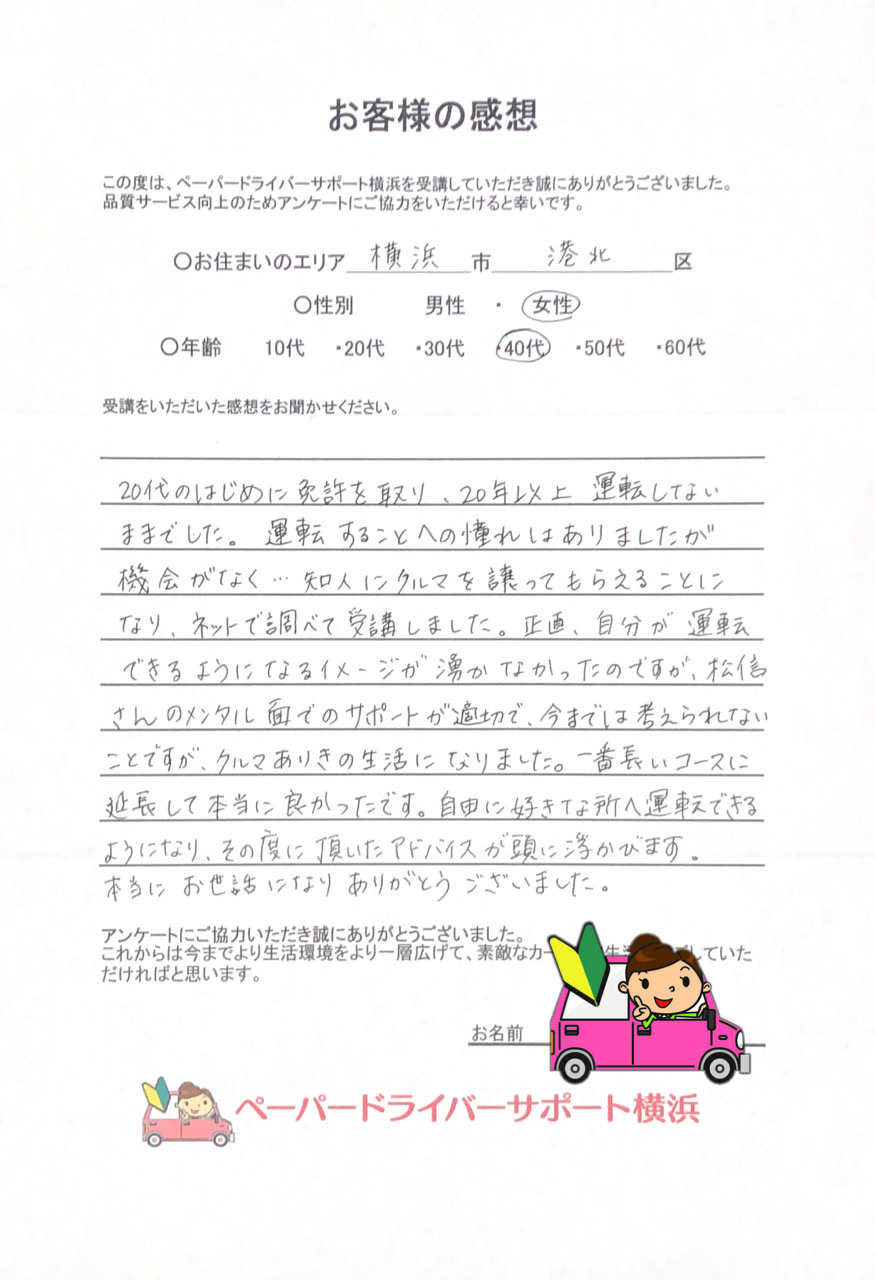 お客様の感想
この度は、ペーパードライバーサポート横浜を受講していただき誠にありがとうございました。
品質サービス向上のためアンケートにご協力をいただけると幸いです。
〇お住まいのエリア 横浜 市 港北 区
〇性別 男性 ・ 女性
〇年齢 10代 ・20代 ・30代 ・40代 ・50代 ・60代
受講をいただいた感想をお聞かせください。
20代のはじめに免許を取り、20年以上 運転してない
ままでした。運転することへの憧れはありましたが
機会がなく…知人にクルマを譲ってもらえることに
なり、ネットで調べて受講しました。正直、自分が運転
できるようになるイメージが湧かなかったのですが、松信
さんのメンタル面でのサポートが適切で、今までは考えられない
ことですが、クルマありきの生活になりました。一番長いコースに
延長して本当に良かったです。自由に好きな所へ運転できる
ようになり、その度に頂いたアドバイスが頭に浮かびます。
本当にお世話になりありがとうございました。
アンケートにご協力いただき誠にありがとうございました。
これからは今までより生活環境をより一層広げて、素敵なカー 生 していた
だければと思います。
お名前
ペーパードライバーサポート横浜